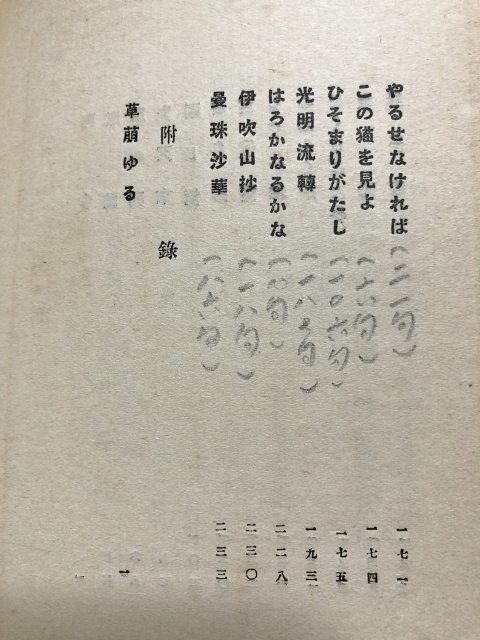 やるせなければ(二一句) 一七一
この猫を見よ(十六句) 一七四
ひそまりがたし(一〇六句) 一七五
光明流轉(一八七句) 一九三
はろかなるかな(八句) 二二八
伊吹山抄(一八句) 二三〇
曼珠沙華(八十八句) 二三三
附錄
草萠ゆる 一